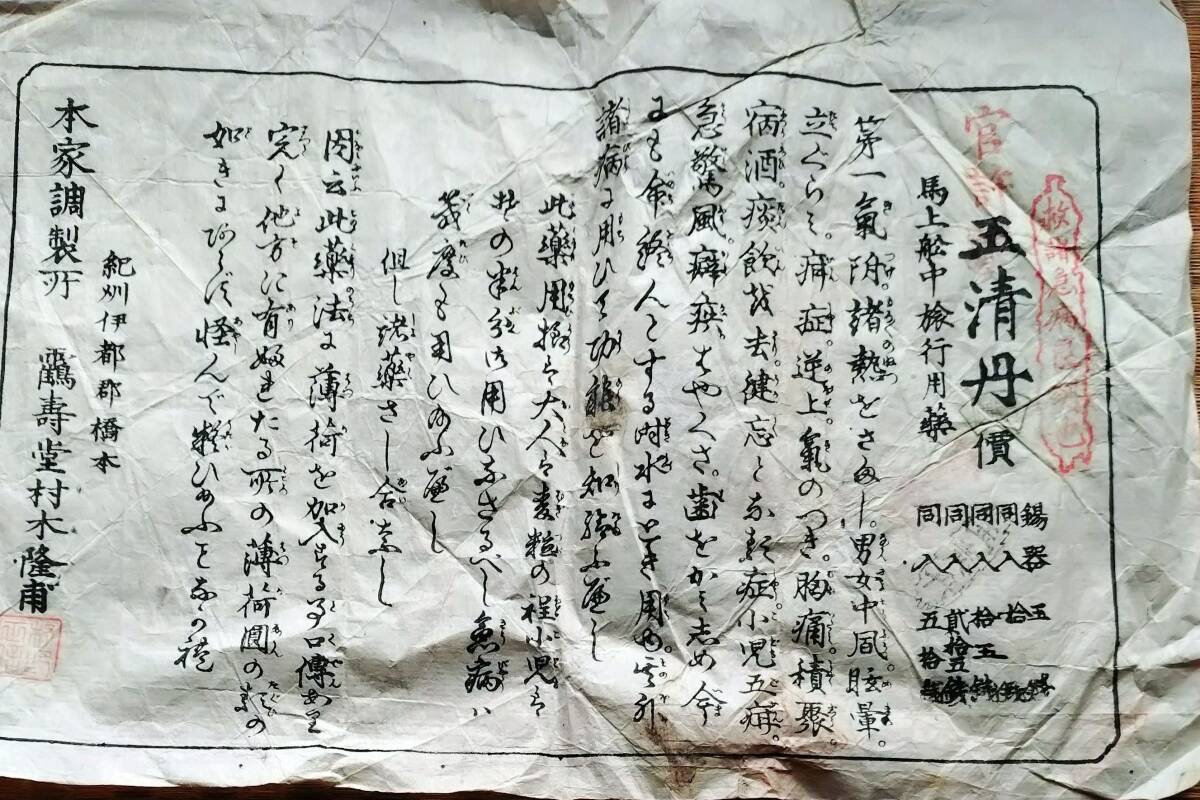 救諸急病
官許
玉清丹 價
錫器 五錢
同入 拾錢
同入 拾五錢
同入 貳拾五錢
同入 五拾錢
馬上舩中旅行用藥
第一氣附諸熱をさまし。男女中風眩暈。
立くらみ。疳症。逆上氣のつき。胸痛積聚。
病酒痰飲或ハ健忘となる症小児五疳。
急驚風癖疾はやくさ。歯をかみしめ今
にも命終んとする時水にとき用ゆ其外
諸病に用ひて功能を知給ふべし
此藥用様は大人は麦粒の程小児は
其の半分御用ひなさるべし急病ハ
幾度も用ひ給ふべし
但し諸藥さし合なし
因云此藥法に薄荷を加入する事口傳あり
完く他方に有ふれたる所の薄荷圓の類の
如きにあらず怪んで疑ひ給ふことなかれ
紀刕伊都郡橋本
本家調製所 壽堂村木隆甫